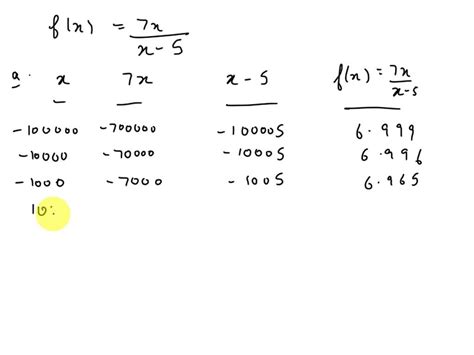 f(x) = 7x / x-5
a. x 7x x-5 f(x) = 7x / x-5
-100000 -700000 -100005 6.999
-10000 -70000 -10005 6.996
-1000 -7000 -1005 6.965
10